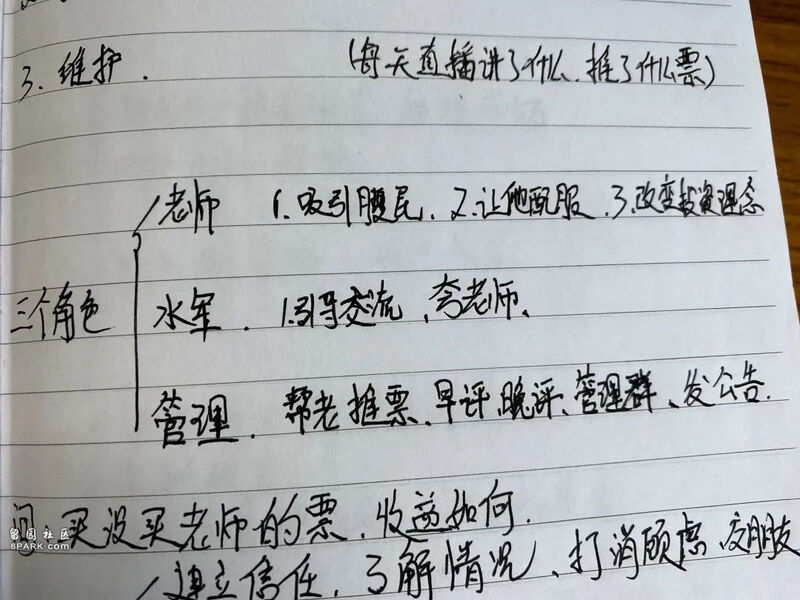 3、维护. (每天直播讲了什么、推了什么票)
老师 1、吸引股民、2、让他配服、3、改变投资理念
三个角色 水军. 1.引导交流、夸老师、
管理、帮老推票、早评、晚评、管理群、发公告.
问: 买没买老师的票、收益如何.
建立信任、了解情况、打消顾虑、交朋友
留园社区
6PARK.COM